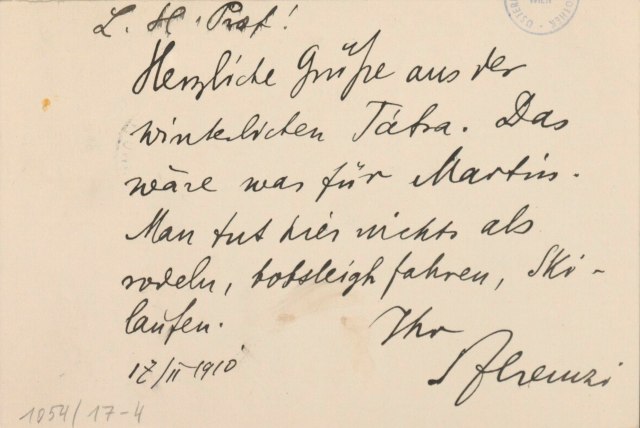 L. H. Prof!
Herzliche Grüße aus der
winterlichen Tátra. Das
wäre was für Martin.
Man tut hier nichts als
rodeln, bobsleigh fahren, Ski-
laufen.
Ihr
Sferenczi
17/II 1910
1054/17-4